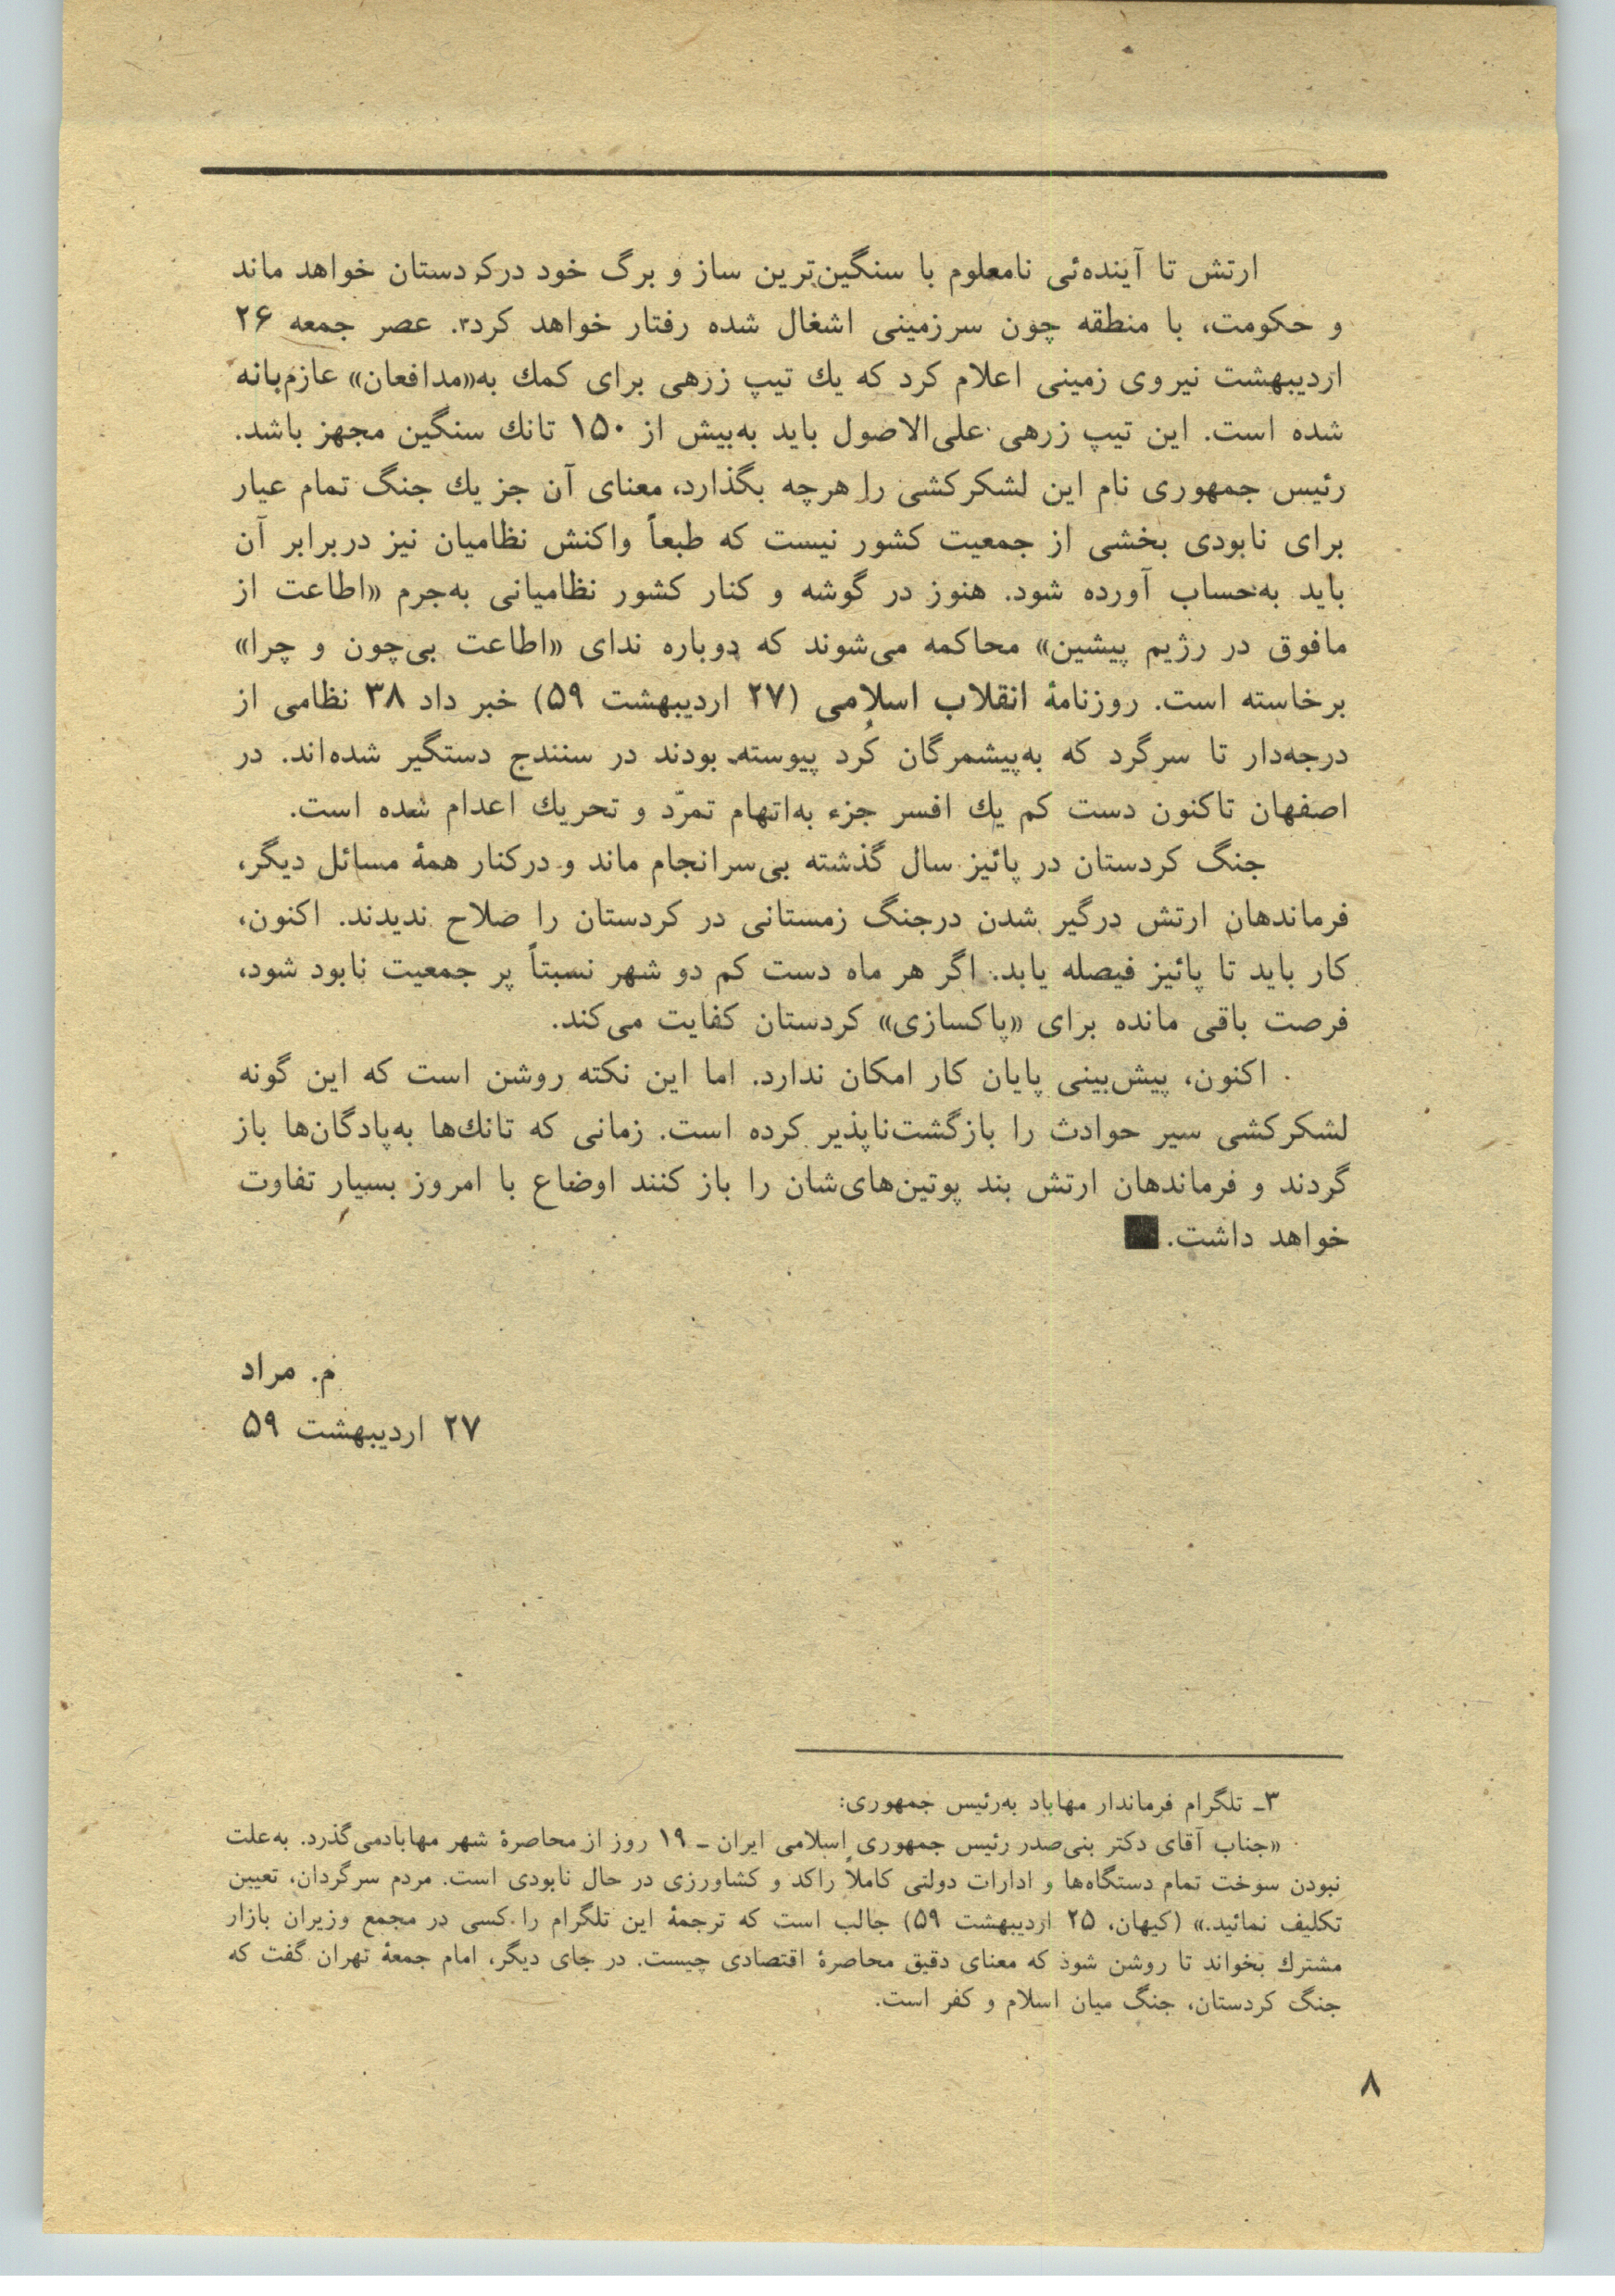 ارتش تا آینده‌ئی نامعلوم با سنگین‌ترین ساز و برگ خود درکردستان خواهد ماند
و حکومت، با منطقه چون سرزمینی اشغال شده رفتار خواهد کرد۳. عصر جمعه ۲۶
اردیبهشت نیروی زمینی اعلام کرد که یك تیپ زرهی برای کمك به«مدافعان» عازم‌بانه
شده است. این تیپ زرهی علی‌الاصول باید به‌بیش از ۱۵۰ تانك سنگین مجهز باشد.
رئیس جمهوری نام این لشکرکشی را هرچه بگذارد، معنای آن جز یك جنگ تمام عیار
برای نابودی بخشی از جمعیت کشور نیست که طبعاً واکنش نظامیان نیز دربرابر آن
باید به‌حساب آورده شود. هنوز در گوشه و کنار کشور نظامیانی به‌جرم «اطاعت از
مافوق در رژیم پیشین» محاکمه می‌شوند که دوباره ندای «اطاعت بی‌چون و چرا»
برخاسته است. روزنامهٔ انقلاب اسلامی (۲۷ اردیبهشت ۵۹) خبر داد ۳۸ نظامی از
درجه‌دار تا سرگرد که به‌پیشمرگان کُرد پیوسته بودند در سنندج دستگیر شده‌اند. در
اصفهان تاکنون دست کم یك افسر جزء به‌اتهام تمرّد و تحریك اعدام شده است.
جنگ کردستان در پائیز سال گذشته بی‌سرانجام ماند و درکنار همهٔ مسائل دیگر،
فرماندهان ارتش درگیر شدن درجنگ زمستانی در کردستان را صلاح ندیدند. اکنون،
کار باید تا پائیز فیصله یابد. اگر هر ماه دست کم دو شهر نسبتاً پر جمعیت نابود شود،
فرصت باقی مانده برای «پاکسازی» کردستان کفایت می‌کند.
اکنون، پیش‌بینی پایان کار امکان ندارد. اما این نکته روشن است که این گونه
لشکرکشی سیر حوادث را بازگشت‌ناپذیر کرده است. زمانی که تانك‌ها به‌پادگان‌ها باز
گردند و فرماندهان ارتش بند پوتین‌های‌شان را باز کنند اوضاع با امروز بسیار تفاوت
خواهد داشت.■
م. مراد
۲۷ اردیبهشت ۵۹
۳ـ تلگرام فرماندار مهاباد به‌رئیس جمهوری:
«جناب آقای دکتر بنی‌صدر رئیس جمهوری اسلامی ایران ـ ۱۹ روز از محاصرهٔ شهر مهابادمی‌گذرد. به‌علت
نبودن سوخت تمام دستگاه‌ها و ادارات دولتی کاملاً راکد و کشاورزی در حال نابودی است. مردم سرگردان، تعیین
تکلیف نمائید.» (کیهان، ۲۵ اردیبهشت ۵۹) جالب است که ترجمهٔ این تلگرام را کسی در مجمع وزیران بازار
مشترك بخواند تا روشن شود که معنای دقیق محاصرهٔ اقتصادی چیست. در جای دیگر، امام جمعهٔ تهران گفت که
جنگ کردستان، جنگ میان اسلام و کفر است.
۸